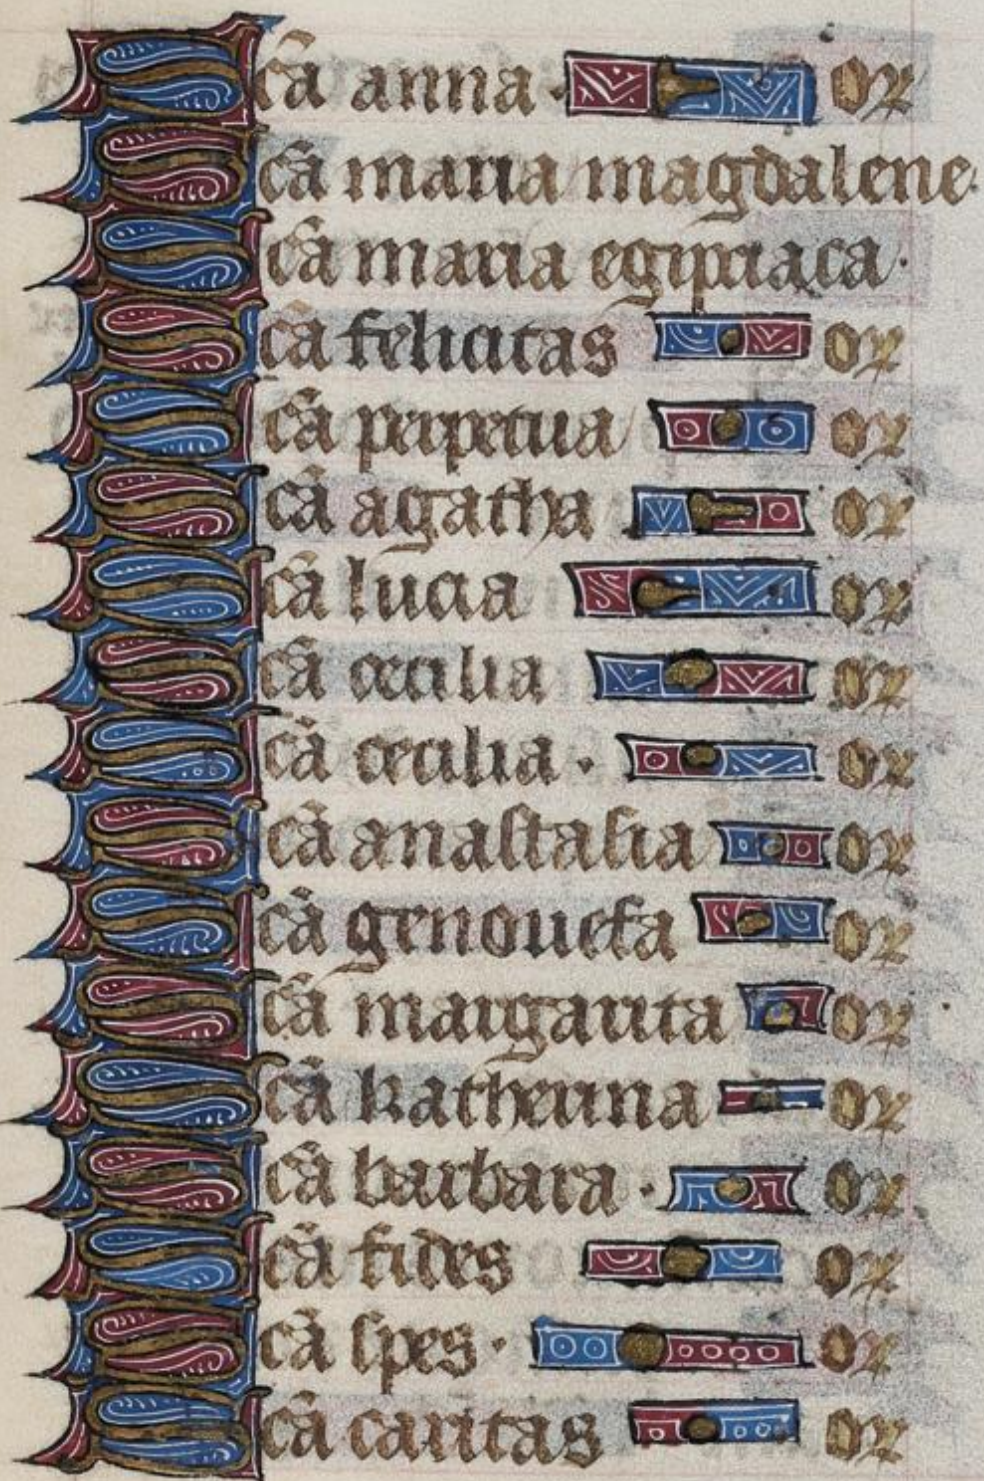 Sc̃a anna · or
Sc̃a maria magdalene·
Sc̃a maria egipciaca·
Sc̃a felicitas or
Sc̃a perpetua or
Sc̃a agatha or
Sc̃a lucia or
Sc̃a cecilia or
Sc̃a cecilia · or
Sc̃a anastasia or
Sc̃a genouefa or
Sc̃a margarita or
Sc̃a katherina or
Sc̃a barbara · or
Sc̃a fides or
Sc̃a spes · or
Sc̃a caritas or